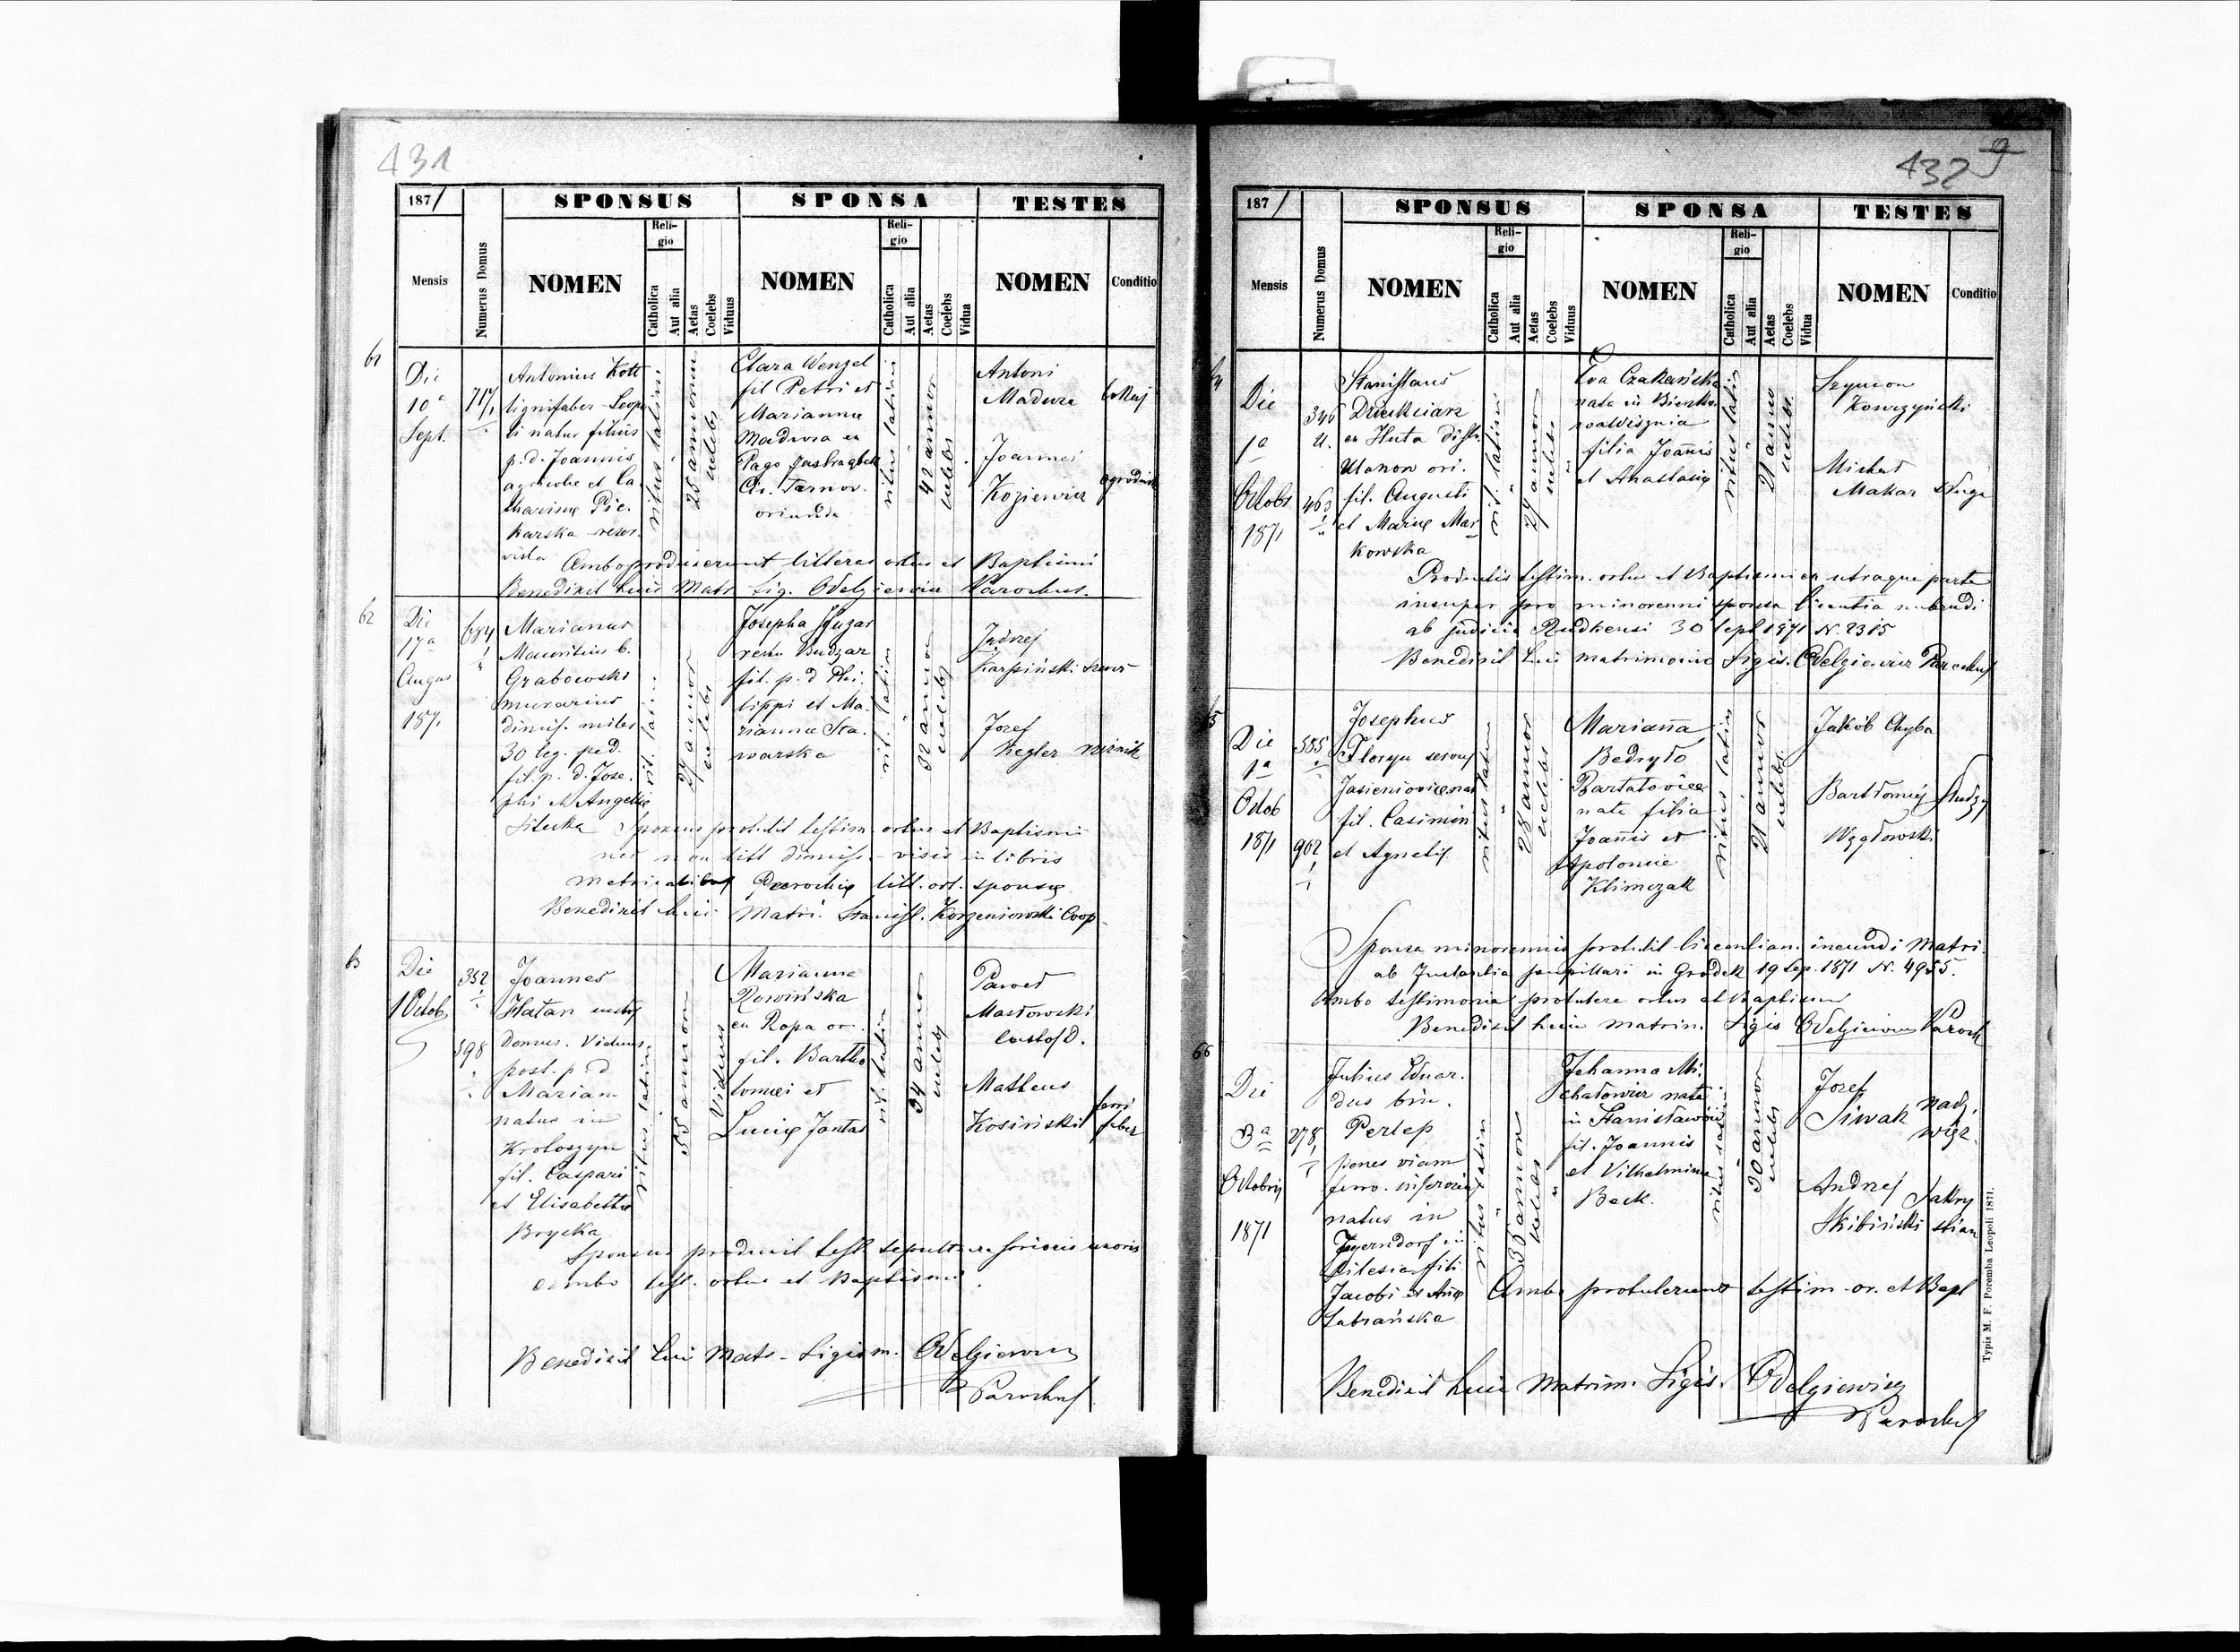 431
187/
SPONSUS
SPONSA
TESTES
Mensis
Numerus Domus
NOMEN
Reli-
gio
Catholica
Aut alia
Aetas
Coelebs
Viduus
NOMEN
Reli-
gio
Catholica
Aut alia
Aetas
Coelebs
Vidua
NOMEN
Conditio
61
Die
10a
Sept.
717/1
Antonius Kott
lignifaber Leopo
li natus filius
p. d. Joannis
agricolae et Ca
tharinae Pie
karska reser
vista
ritus latini
25 annorum
coelebs
Clara Wenzel
fil Petri et
Marianna
Madura ex
Pago
Cir. Tarnov.
oriunda
ritus latini
42 annor
coelebs
Antoni
Madura
lokaj
Joannes
Koziewicz
ogrodnik
Ambo produxerunt litteras ortus et Baptismi
Benedixit huic Matr Sig. Odelgiewicz Parochus.
62
Die
17a
Augus
187.
684
Marianus
Mauritius b.
Grabowski
murarius
dimis. miles
30 leg. ped.
fil. p. d. Jose.
phi et Angelae
Silecka
rit. latin.
27 annor
coelebs
Josepha Huzar
rectu Budzar
fil. p. d Phi.
lippi et Ma.
riannae Sta.
warska
rit. latin
32 annor
coelebs
Jędrzej
Karpiński
Jozef
Kegler rzeźnik
Sponsus protulit testim. ortus et Baptismi
nec non litt dimiss. visis in libris
metricalibus Parochiae litt. ort. sponsae
Benedixit huic Matri. Stanisl. Korzeniowski Coop.
63
Die
1 Octob
352
598
Joannes
Hatan custos
Domus. Viduus.
post. p d
Mariam
natus in
Krotoszyn
fil. Caspari
et Elisabetha
Brycka
ritus latini
55 annorum
Viduus
Marianna
Rowińska
ex Ropa or.
fil. Bartho
lomaei et
Luciae Jantas
rit. latin
34 annor
coelebs
Paweł
Masłowski
Custos D.
Matheus
Kosiński
ferri
faber
Sponsus produxit test sepulturae prioris uxoris
ambo test. ortus et Baptismi.
Benedixit huic Matr. Sigism. Odelgiewicz
Parochus
432
9
187/
SPONSUS
SPONSA
TESTES
Mensis
Numerus Domus
NOMEN
Reli-
gio
Catholica
Aut alia
Aetas
Coelebs
Viduus
NOMEN
Reli-
gio
Catholica
Aut alia
Aetas
Coelebs
Vidua
NOMEN
Conditio
64
Die
1a
Octobr
1871
346
463
Stanislaus
ex Huta distr.
Ulanow ori.
fil. Augusti
et Mariae Mar
kowska
rit. latini
24 annor
coelebs
Eva Czakańska
nata in Bienko.
wawisznia
filia Joannis
et Anastasiae
ritus latin
21 anno
coelebs.
Szymon
Kowrzyński
Michał
Makar sługa
Productis testim. ortus et Baptismi ex utraque parte
insuper pro minorenni sponsa licentia nubendi
ab judicio Rudkensi 30 Sept 1871 N. 2315
Benedixit huic matrimonio Sigis. Odelgiewicz Parochus
65
Die
1a
Octob
1871
585
962
Josephus
Floryn servus
fil. Casimiri
et Agnetis
ritus latin
28 annor
coelebs
Marianna
Bedryło
Bartatowice
nata filia
Joannis et
Apolonie
Klimczak
ritus latin
21 annor
coelebs
Jakób Chyba
Bartłomiej
Węgłowski
Słudzy
Sponsa minorennis protulit licentiam ineundi Matri.
ab Instantia pupillari in Grodek 19 Sep. 1871 N. 4955.
Ambo testimonia protulere ortus et Baptismi
Benedixit huic matrim. Sigis Odelgiewicz Paroch
66
Die
3a
Octobris
1871
278
Julius Eduar.
dus bin.
Perlep
penes viam
ferro.
natus in
Jägerndorf in
Silesia fili
Jacobi et Annae
Labrańska
ritus latin
35 annor
coelebs
Johanna Mi.
chałowicz nata
in Stanisławów
fil. Joannis
et Vilhelmina
Beck.
30 annor
coelebs
Jozef
Siwak nadz.
więz.
Andrzej
Skibiński
Zakry
stian
Ambo protulerunt testim. or. et Bapt
Benedixit huic Matrim. Sigis. Odelgiewicz
Parochus
Typis M. F. Poremba Leopoli 1871.